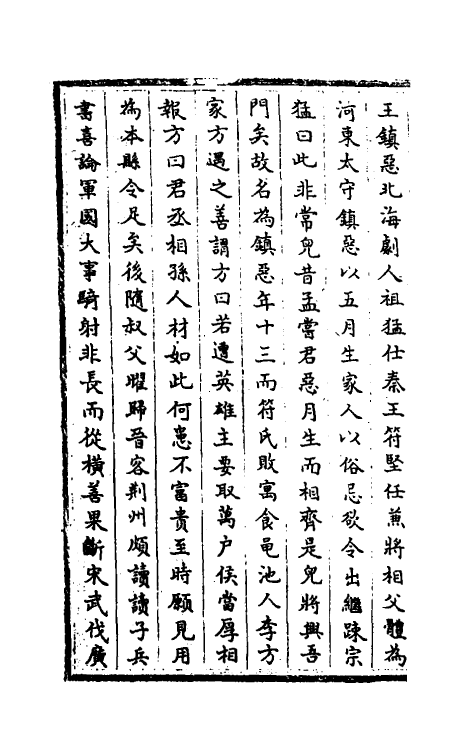 王鎮惡北海劇人祖猛仕秦王符堅任蕪將相父體為
河東太守鎮惡以五月生家人以俗忌欲令出繼踈宗
猛曰此非常兒昔孟嘗君惡月生而相齊是兒將興吾
門矣故名為鎮惡年十三而符氏敗寓食黽池人李方
家方遇之善謂方曰若遭英雄主要取萬户侯當厚相
報方曰君丞相孫人材如此何患不富貴至時願見用
為本縣令足矣後隨叔父曜歸晉客荆州頗讀讀子兵
書喜論軍國大事騎射非長而從橫善果斷宋武伐廣